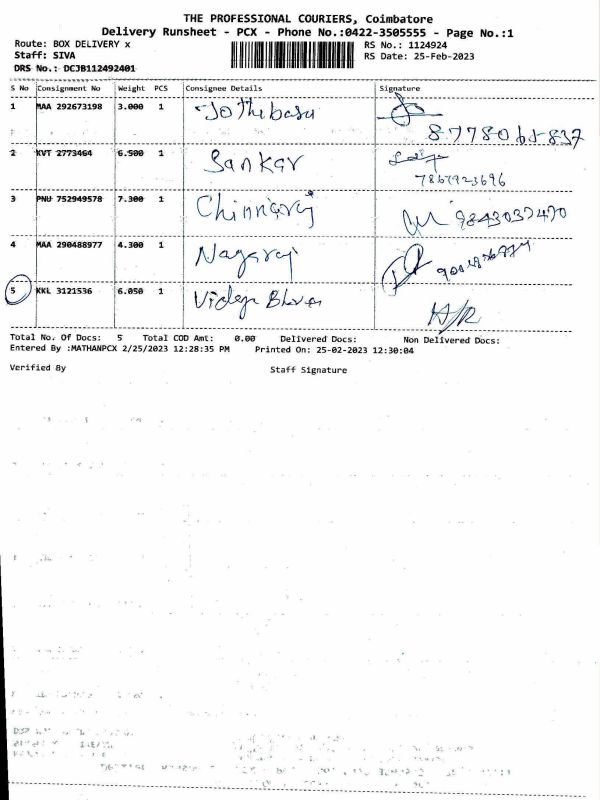 THE PROFESSIONAL COURIERS, Coimbatore
Delivery Runsheet - PCX - Phone No.:0422-3505555 - Page No.:1
Route: BOX DELIVERY x RS No.: 1124924
Staff: SIVA RS Date: 25-Feb-2023
DRS No.: DCJB112492401
S No Consignment No Weight PCS Consignee Details Signature
1 MAA 292673198 3.000 1 Jothibasu
8778065837
2 KVT 2773464 6.500 1 Sankar
7867923696
3 PNU 752949578 7.300 1 Chinnaraj 9843037470
4 MAA 290488977 4.300 1 Nagaraj
5 KKL 3121536 6.050 1 Vidya
Total No. Of Docs: 5 Total COD Amt: 0.00 Delivered Docs: Non Delivered Docs:
Entered By :MATHANPCX 2/25/2023 12:28:35 PM Printed On: 25-02-2023 12:30:04
Verified By Staff Signature